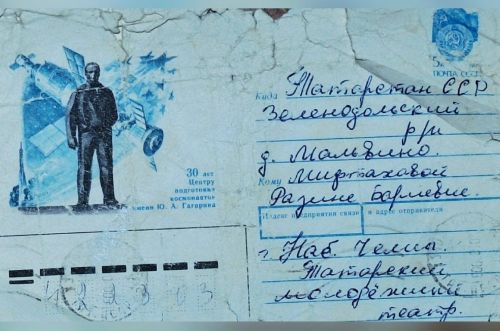 30 лет
Центру
подготовки
космонавтов
имени Ю. А. Гагарина
ПОЧТА СССР
Куда Татарстан ССР
Зеленодольский
р/н
д. Мальвино.
Кому Мифтаховой
Разине
Индекс предприятия связи и адрес отправителя
г Наб. Челны.
Татарский
молодёжный
театр.